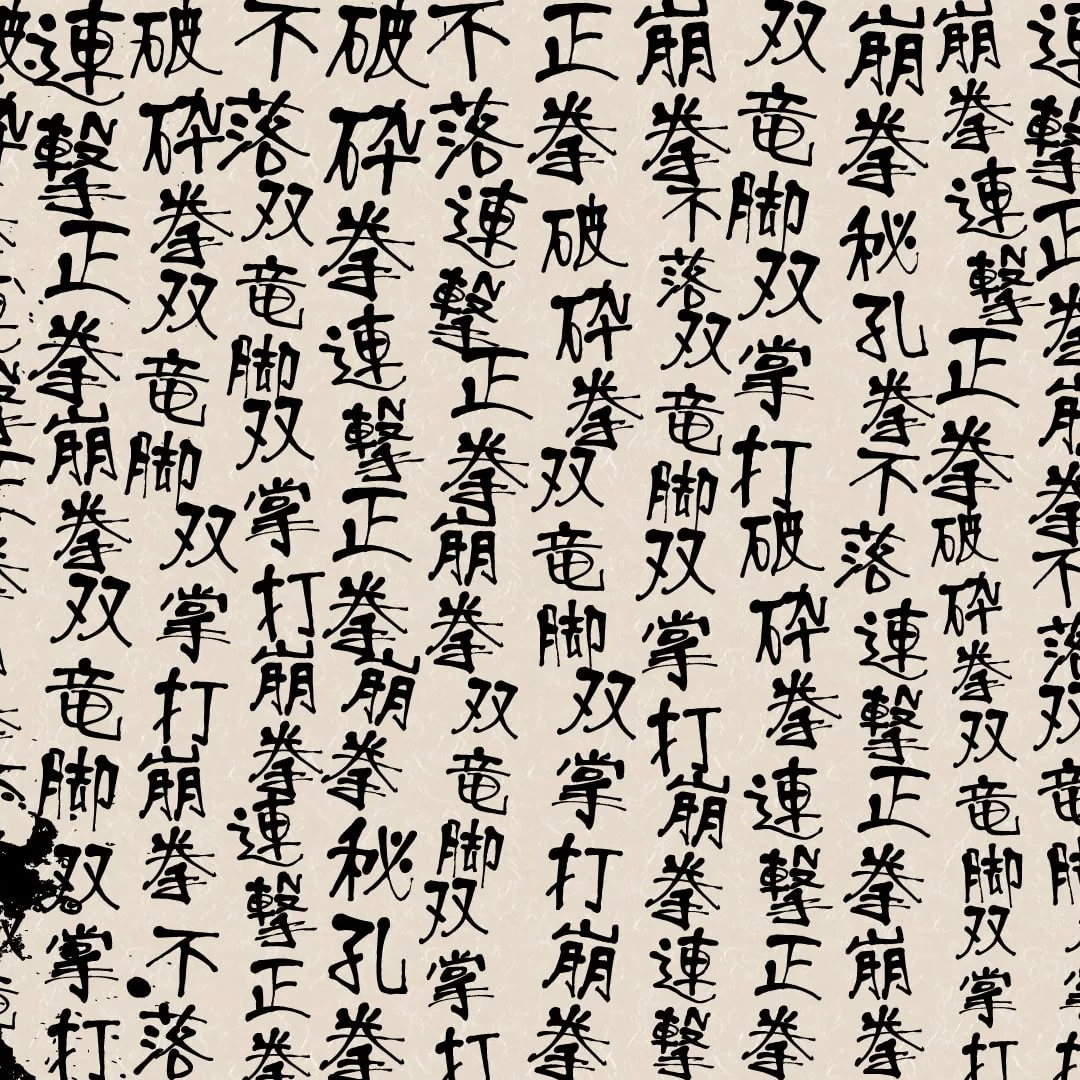 連撃正拳崩拳不落双竜脚双掌打
崩拳連撃正拳破砕拳双竜脚双掌打
崩拳秘孔拳不落連撃正拳崩拳
双竜脚双掌打破砕拳連撃正拳
崩拳不落双竜脚双掌打崩拳連撃
正拳破砕拳双竜脚双掌打崩拳
不落連撃正拳崩拳双竜脚双掌打
破砕拳連撃正拳崩拳秘孔拳
不落双竜脚双掌打崩拳連撃正拳
破砕拳双竜脚双掌打崩拳不落
連撃正拳崩拳双竜脚双掌打
破砕